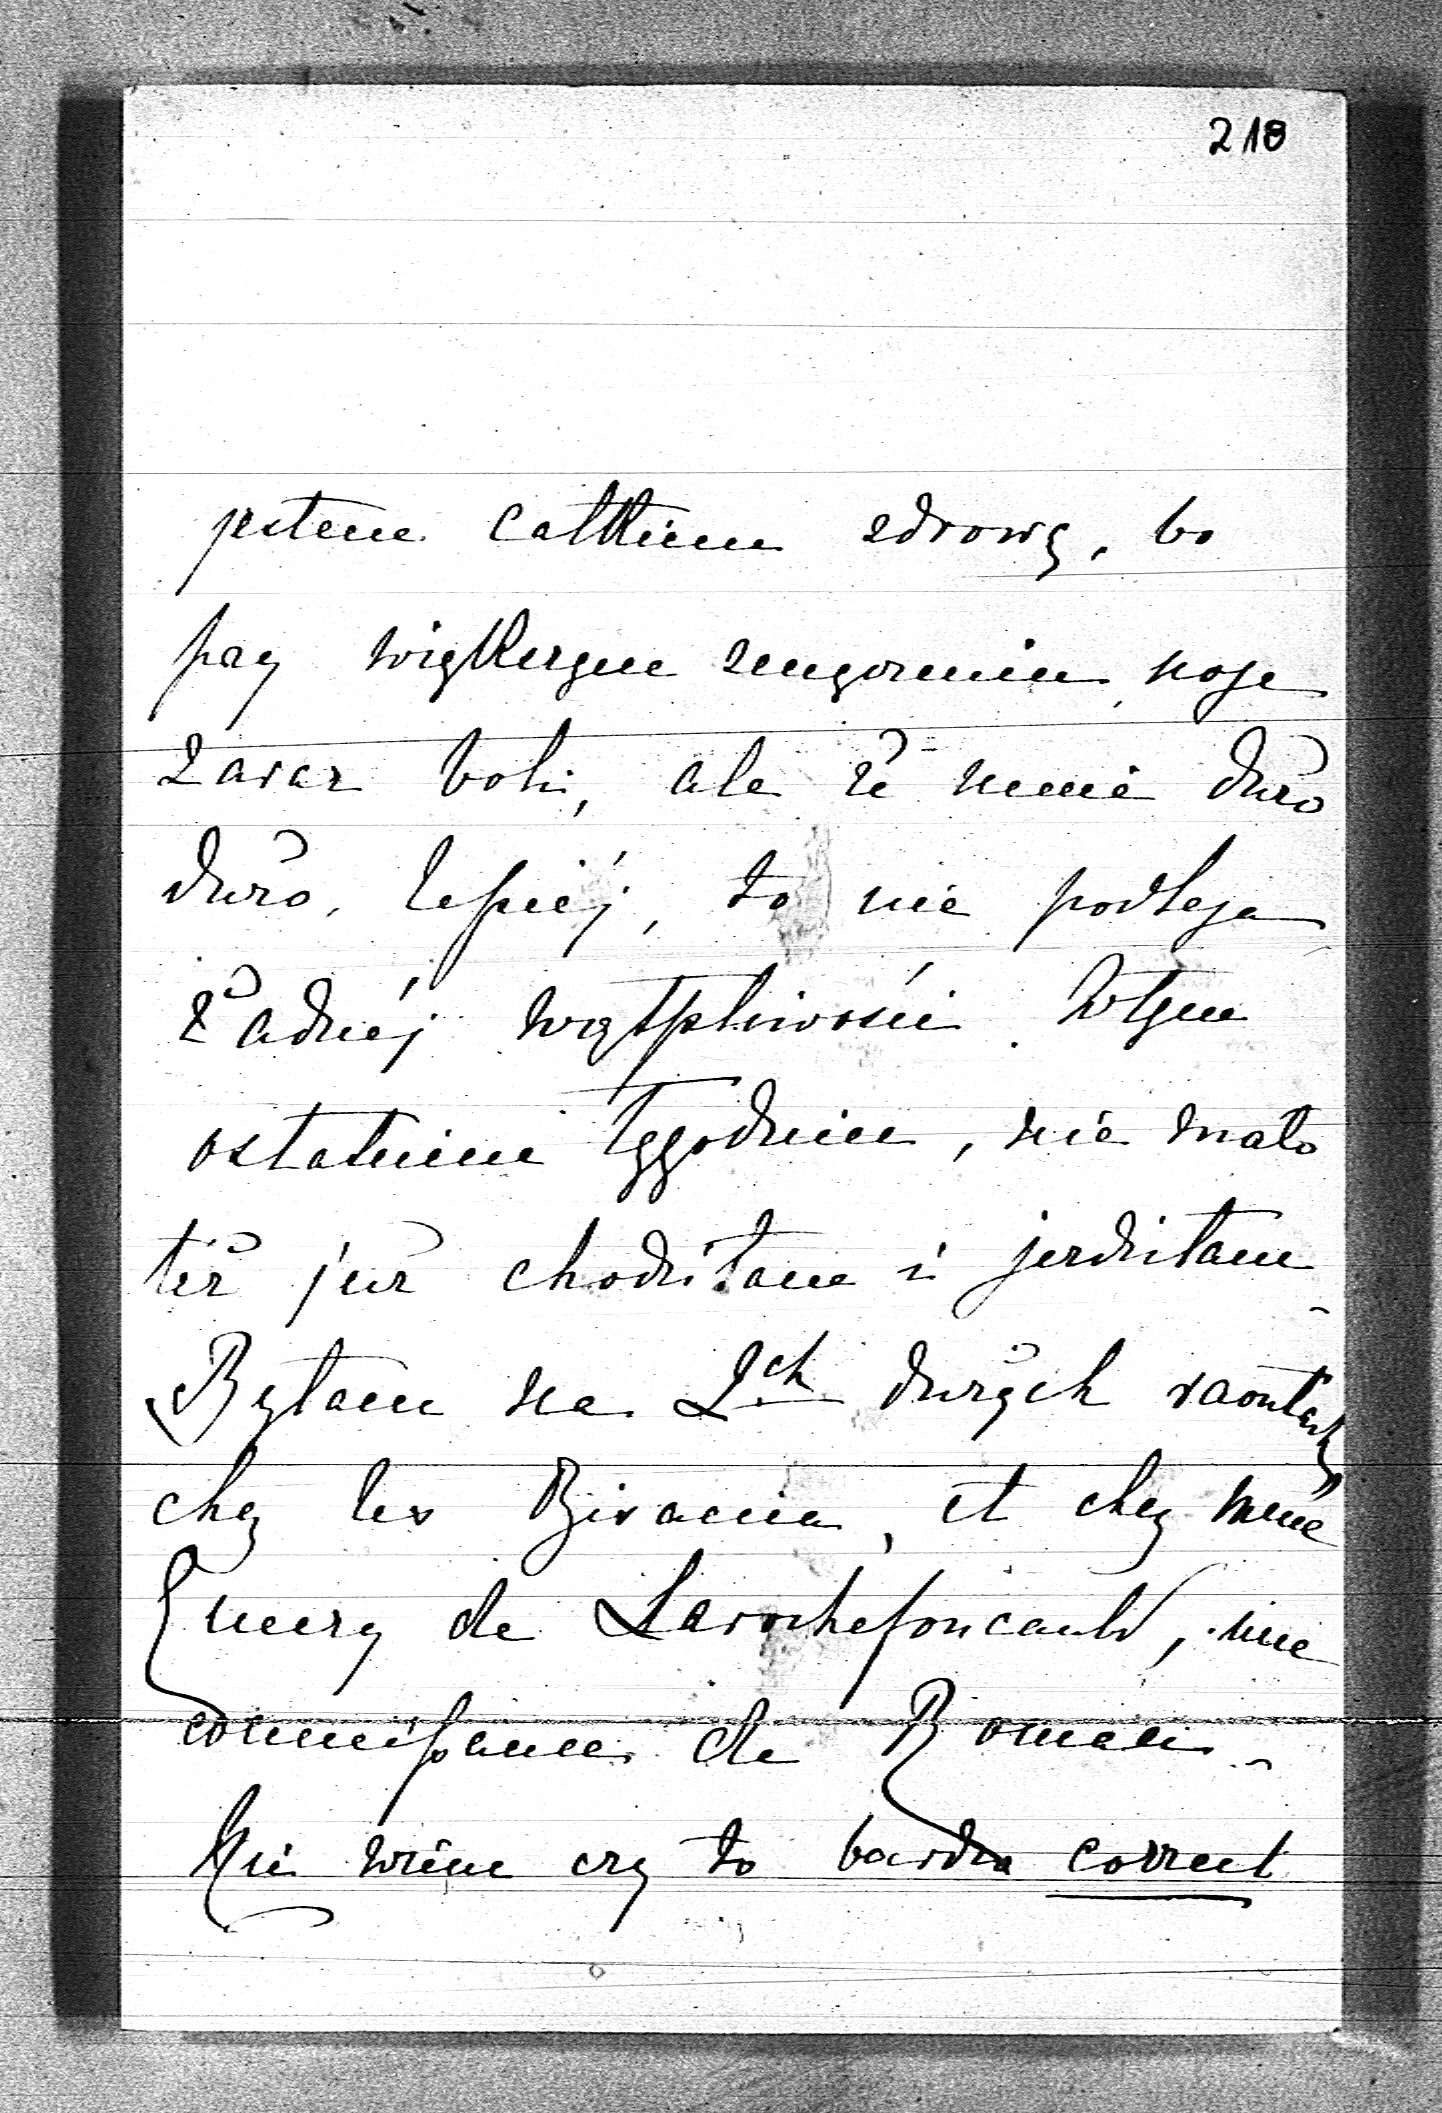 218
jestem całkiem zdrową, bo
przy większym zmęczeniu, noga
zaraz boli, ale że mnie dużo
dużo, lepiéj, to nie podlega
żadnéj wątpliwości. W tym
ostatnim tygodniu, nie mało
też już chodziłam i jeździłam
Byłam na 2ch dużych raoutach
chez les Bisaccia, et chez Mme
Emery de Larochefoucauld, une
connaissance de Roman.
Nie wiem czy to bardzo correct